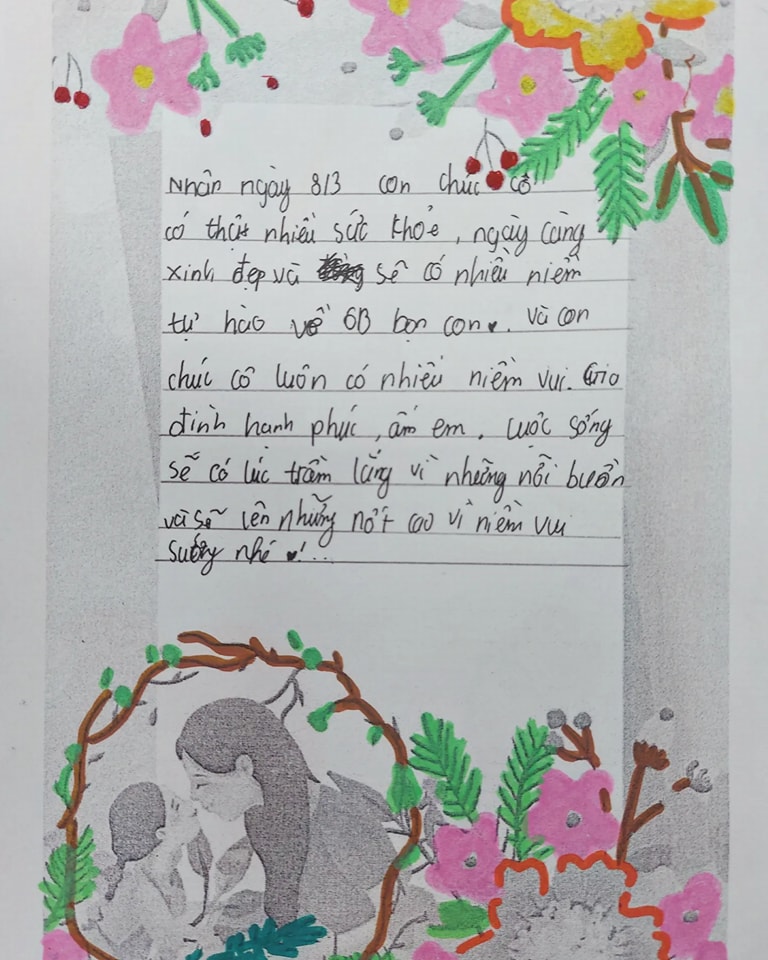 Nhân ngày 8/3 con chúc cô
có thật nhiều sức khỏe, ngày càng
xinh đẹp và sẽ có nhiều niềm
tự hào về 6B bọn con♥. Và con
chúc cô luôn có nhiều niềm vui. Gia
đình hanh phúc, ấm êm. Cuộc sống
sẽ có lúc trầm lắng vì những nỗi buồn
và sẽ lên những nốt cao vì niềm vui
sướng nhé ♥!...